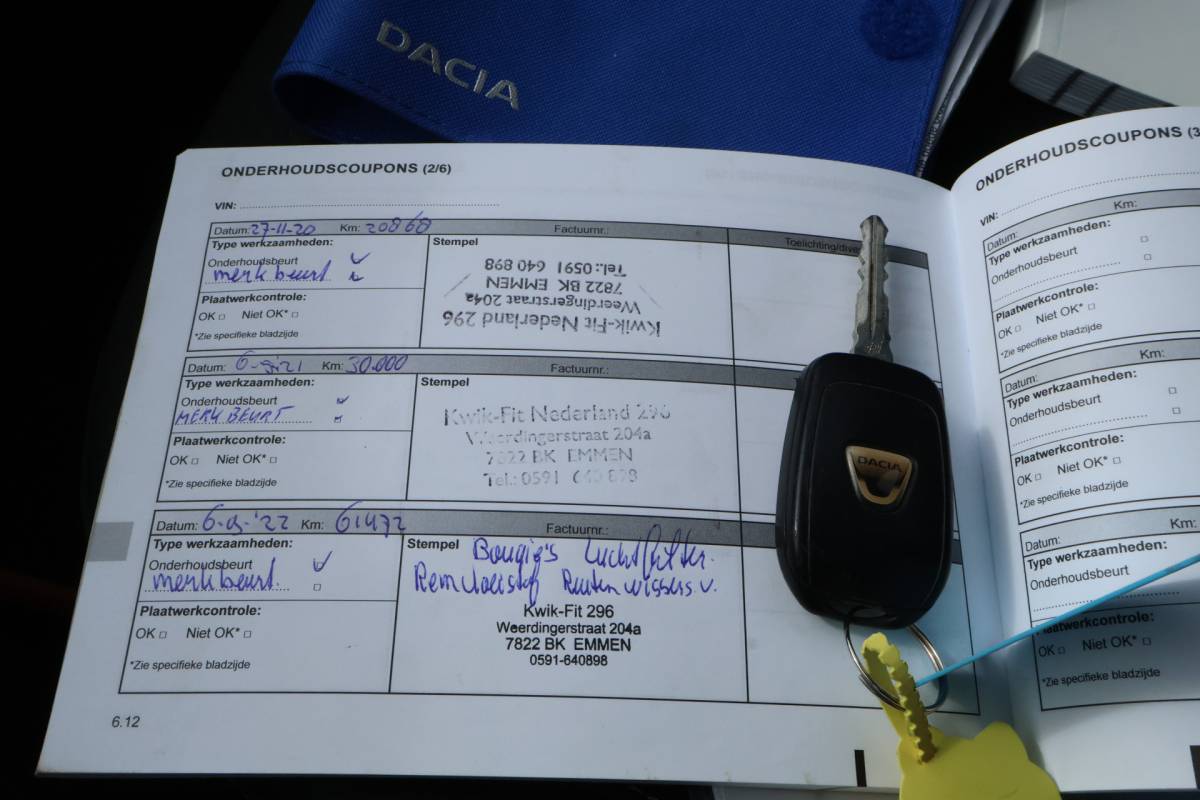 DACIA
ONDERHOUDSCOUPONS (2/6)
VIN:
Datum: 27-11-20 Km: 20868 Factuurnr.:
Type werkzaamheden:
Onderhoudsbeurt
merkbeurt
Plaatwerkcontrole:
OK Niet OK*
*Zie specifieke bladzijde
Stempel
Kwik-Fit Nederland 296
Weerdingerstraat 204a
7822 BK EMMEN
Tel.: 0591 640 898
Toelichting/dive
Datum: Km: 30.000 Factuurnr.:
Type werkzaamheden:
Onderhoudsbeurt
MERK BEURT
Plaatwerkcontrole:
OK Niet OK*
*Zie specifieke bladzijde
Stempel
Kwik-Fit Nederland 296
Weerdingerstraat 204a
7822 BK EMMEN
Tel.: 0591 640 898
Datum: Km: 61472 Factuurnr.:
Type werkzaamheden:
Onderhoudsbeurt
merkbeurt.
Plaatwerkcontrole:
OK Niet OK*
*Zie specifieke bladzijde
Stempel
Bougie's Luchtfilter.
Remvloeistof Ruitenwissers v.
Kwik-Fit 296
Weerdingerstraat 204a
7822 BK EMMEN
0591-640898
6.12
DACIA
ONDERHOUDSCOUPONS (3
VIN:
Datum: Km:
Type werkzaamheden:
Onderhoudsbeurt
Plaatwerkcontrole:
OK Niet OK*
*Zie specifieke bladzijde
Datum: Km:
Type werkzaamheden:
Onderhoudsbeurt
Plaatwerkcontrole:
OK Niet OK*
*Zie specifieke bladzijde
Datum: Km:
Type werkzaamheden:
Onderhoudsbeurt
Plaatwerkcontrole:
OK Niet OK*
*Zie specifieke bladzijde